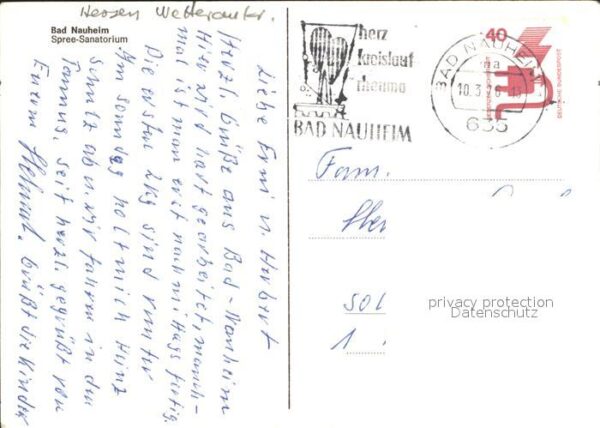 Hessen Wetterauкr.
Bad Nauheim
Spree-Sanatorium
Liebe Erni u. Herbert
Herzl. Grüße aus Bad-Nauheim
Hier wird hart gearbeitet, manch-
mal ist man erst nachmittags fertig.
Die ersten 2 kg sind runter
Am Sonntag holt mich Heinz
Schulz ab u. wir fahren in den
Taunus, seit herzl. gegrüßt von
Eurem Helmut. Grüßt die Kinder
herz
kreislauf
rheuma
BAD NAUHEIM
BAD NAUHEIM
635
40
DEUTSCHE BUNDESPOST
Fam.
SOL
1
privacy protection
Datenschutz